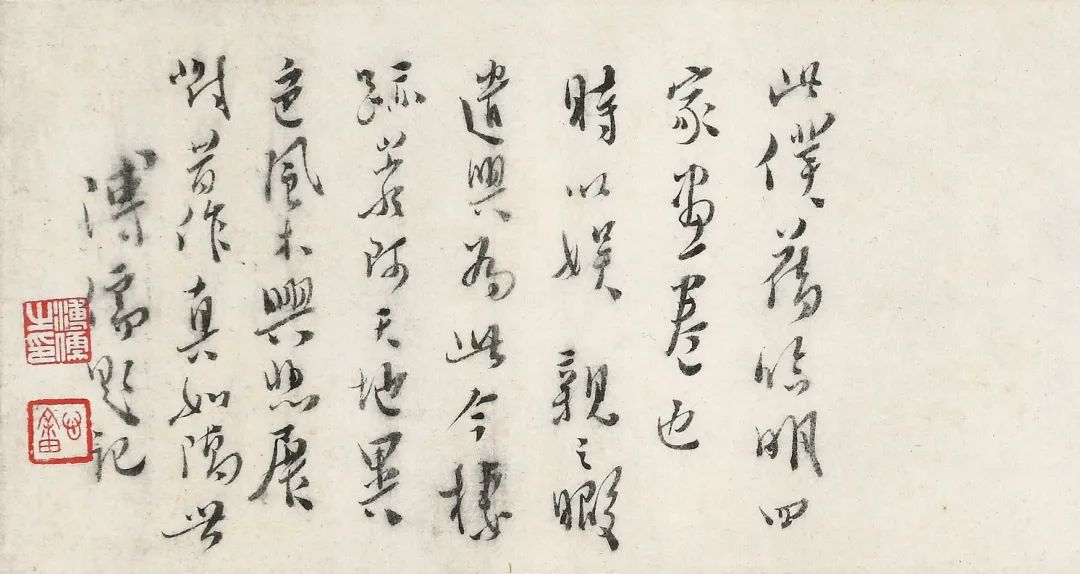 此僕舊臨明四
家畫卷也
時以娛 親之暇
遣興為此今棲
跡巖阿天地異
色風木興悲展
對昔作真如隔世
溥儒題記
溥儒之印
心畬